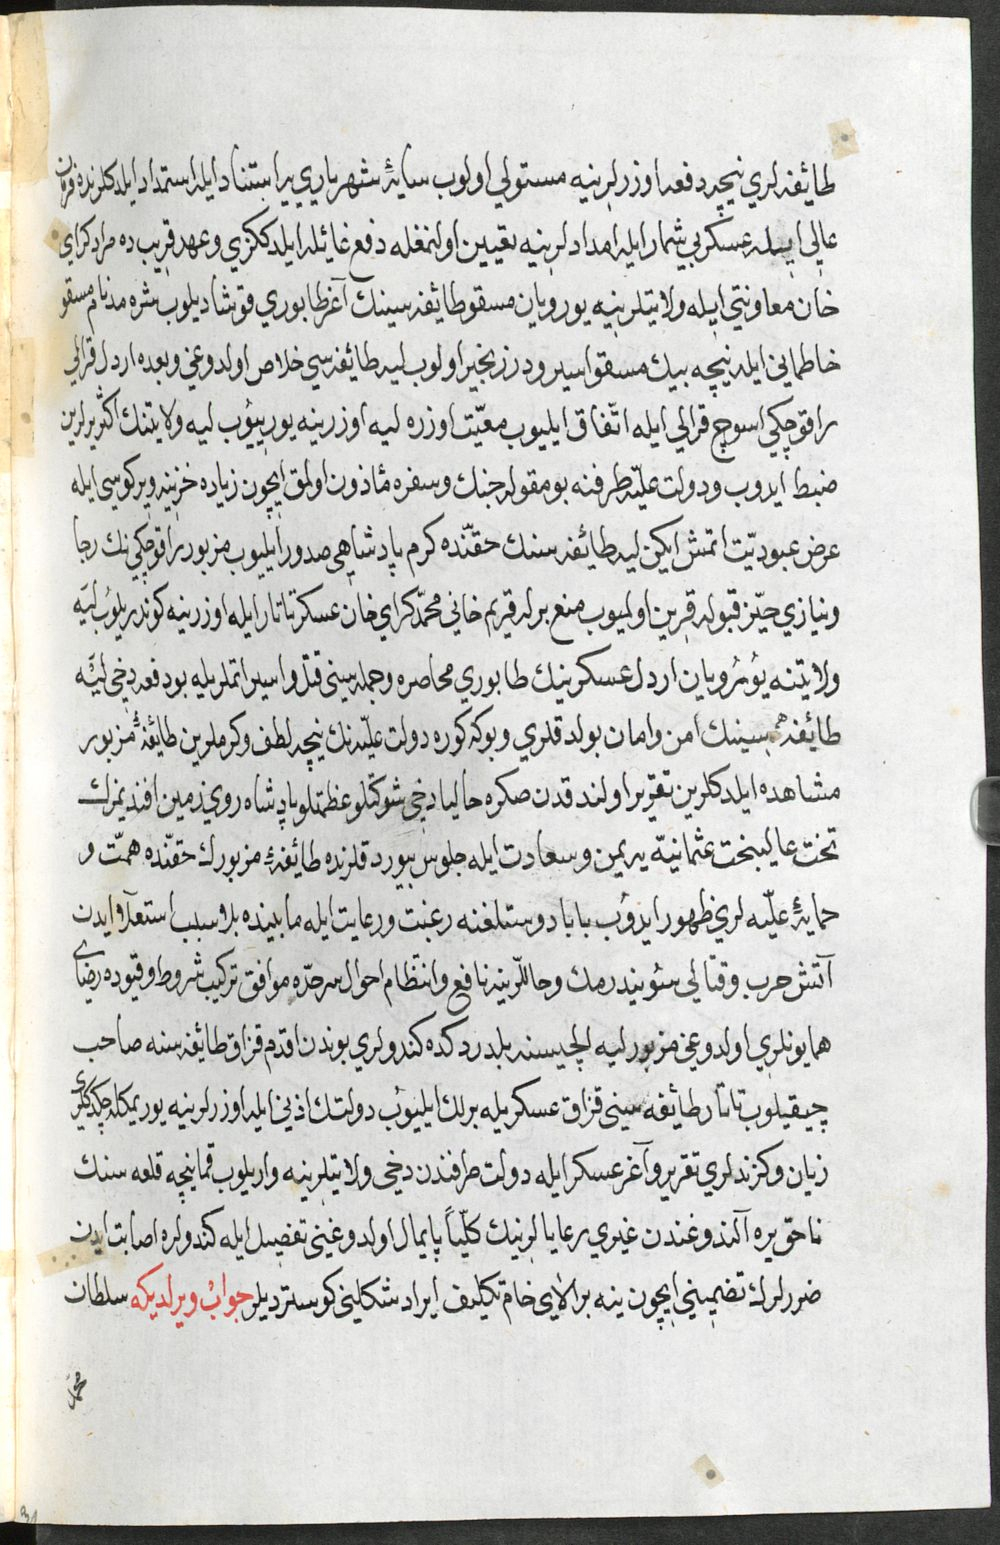 طائفه‌لري نيچه دفعه اوزرلرينه مستولي اولوب سايۀ شهرياري‌يه استناد ايله استمداد ايلدكلرنده فرمان
عالي ايله عسكر بي‌شمار ايله امدادلرينه تعيين اولنمغله دفع غائله ايلدككزي وعهد قريب ده مراد كراي
خان معاونتي ايله ولايتلرينه يورويان مسقو طائفه‌سينك آغر طابوري قوشاديلوب شره مدنام مسقو
خاطماني ايله نيچه بيك مسقو اسير ودر زنجير اولوب ليه طائفه‌سي خلاص اولدوغي وبعده اردل قرالي
راقوچكي اسوج قرالي ايله اتّفاق ايليوب معيّت اوزره ليه اوزرينه يورييوب ليه ولايتنك اكثر يرلرين
ضبط ايدوب ودولت عليّه طرفنه بومقوله جنك وسفره مأذون اولمق ايچون زياده خزينه ويركوسي ايله
عرض عبوديّت اتمش ايكن ليه طائفه‌سنك حقّنده كرم پادشاهي صدور ايليوب مزبور راقوچكي‌نك رجا
ونيازي حيّز قبوله قرين اولميوب منع برله قريم خاني محمّد كراي خان عسكر تاتار ايله اوزرينه كوندريلوب ليَه
ولايتنه يوُرُويان اردل عسكرينك طابوري محاصره وجمله‌سيني قتل واسير اتملريله بودفعه دخي ليَه
طائفه‌سينك امن وامان بولدقلري وبوكه كوره دولت عليّه‌نك نيچه لطف وكرملرين طائفۀ مزبور
مشاهده ايلدكلرين تقرير اولندقدن صكره حاليا دخي شوكتلو عظمتلو پادشاه روي زمين افنديمزك
تخت عاليبخت عثمانيّه‌يه يمن وسعادت ايله جلوس بيوردقلرنده طائفۀ مزبورك حقّنده همّت و
حمايۀ عليّه‌لري ظهور ايدوُب بابا دوستلغنه رغبت ورعايت ايله مابينده بلا سبب استعلا ايدن
آتش حرب وقتالي سوُيندرمك وحاللرينه نافع وانتظام احوال سرحدّه موافق تركيب شروط وقيوده رضاي
همايونلري اولدوغي مزبور ليه ايلچيسنه بلدردكده كندولري بوندن اقدم قزاق طائفه‌سنه صاحب
چيقيلوب تاتار طائفه‌سيني قزاق عسكريله برلك ايليوُب دولتك اذني ايله اوزرلرينه يوريمكله چكدكلري
زيان وكزندلري تقرير وآغر عسكر ايله دولت طرفندن دخي ولايتلرينه واريلوب قمانيچه قلعه‌سنك
ناحق يره آلندوغندن غيري رعايالرينك كلّياً پايمال اولدوغيني تفصيل ايله كندولره اصابت ايدن
ضررلرك تضميني ايچون ينه بر آلاي خام تكليف ايراد شكليني كوستردیلر جوابْ ويرلديكه سلطان
محمد